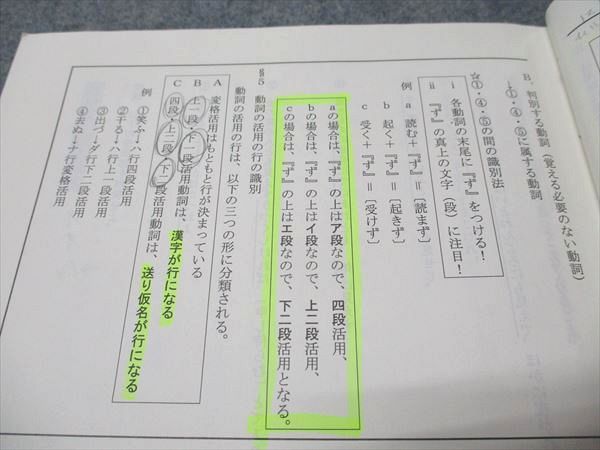 B、判別する動詞(覚える必要のない動詞)
①・④・⑤に属する動詞
☆①・④・⑤の間の識別法
ⅰ 各動詞の末尾に『ず』をつける!
ⅱ 『ず』の真上の文字(段)に注目!
例 a 読む+『ず』=〔読まず〕
b 起く+『ず』=〔起きず〕
c 受く+『ず』=〔受けず〕
aの場合は、『ず』の上はア段なので、四段活用、
bの場合は、『ず』の上はイ段なので、上二段活用、
cの場合は、『ず』の上はエ段なので、下二段活用となる。
§5 動詞の活用の行の識別
動詞の活用の行は、以下の三つの形に分類される。
A 変格活用はもともと行が決まっている
B 上一段・下一段活用動詞は、漢字が行になる
C 四段・上二段・下二段活用動詞は、送り仮名が行になる
例 ①笑ふ→ハ行四段活用
②干る→ハ行上一段活用
③出づ→ダ行下二段活用
④去ぬ→ナ行変格活用